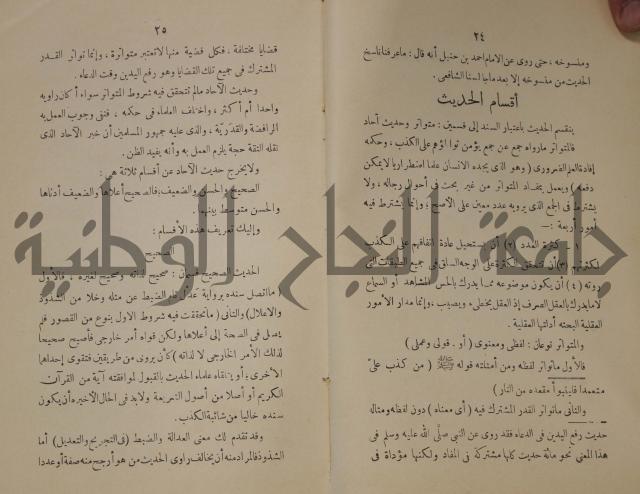 ٢٤
ومنسوخه ، حتى روى عن الامام احمد بن حنبل أنه قال : ماعرفنا ناسخ
الحديث من منسوخه إلا بعد ماجالسنا الشافعى .
أقسام الحديث
ينقسم الحديث باعتبار السند إلى قسمين : متواتر وحديث آحاد
فالمتواتر مارواه جمع عن جمع يؤمن تواطؤهم على الكذب ، وحكمه
إفادة العلم الضرورى ( وهو الذى يجده الانسان علما اضطراريا لا يمكن
دفعه ) ويعمل بمفاد المتواتر من غير بحث فى أحوال رجاله ، ولا
يشترط فى الجمع الذى يرويه عدد معين على الأصح ، وإنما يشترط فيه
أمور أربعة :—
١ - كثرة العدد (٢) أن يستحيل عادة اتفاقهم على الكذب
لكثرتهم (٣) أن تتحقق الكثرة على الوجه السابق فى جميع الطبقات التى
روته (٤) أن يكون موضوعه مما يدرك بالحس المشاهد أو السماع
لا ما يدرك بالعقل الصرف إذ العقل يخطىء ويصيب ، وإنما مدار الأمور
العقلية البحتة أدلتها العقلية .
والمتواتر نوعان : لفظى ومعنوى ( أو . قولى وعملى )
فالأول ماتواتر لفظه ومن أمثلته قوله ﷺ ( من كذب علىّ
متعمدا فليتبوأ مقعده من النار )
والثانى ماتواتر القدر المشترك فيه ( أى معناه ) دون لفظه ومثاله
حديث رفع اليدين فى الدعاء فقد روى عن النبى صلى الله عليه وسلم فى
هذا المعنى نحو مائة حديث كلها مشتركة فى المفاد ولكنها مؤداة فى
٢٥
قضايا مختلفة ، فكل قضية منها لا تعتبر متواترة ، وإنما تواتر القدر
المشترك فى جميع تلك القضايا وهو رفع اليدين وقت الدعاء .
وحديث الآحاد مالم تتحقق فيه شروط المتواتر سواء أكان راويه
واحدا أم أكثر ، واختلف العلماء فى حكمه ، فنفى وجوب العمل به
الرافضة والقدرية ، والذى عليه جمهور المسلمين أن خبر الآحاد الذى
نقله الثقة حجة يلزم العمل به وأنه يفيد الظن .
ولا يخرج حديث الآحاد عن أقسام ثلاثة هى :
الصحيح والحسن والضعيف : فالصحيح أعلاها والضعيف أدناها
والحسن متوسط بينهما .
وإليك تعريف هذه الأقسام :
الصحيح
الحديث الصحيح قسمان : صحيح لذاته وصحيح لغيره ، فالأول
( ما اتصل سنده برواية عدل تام الضبط عن مثله وخلا من الشذوذ
والاعلال ) والثانى ( ما تحققت فيه شروط الاول بنوع من القصور فلم
يصل فى الصحة إلى أعلاها ولكن قواه أمر خارجى فأصبح صحيحا
لذلك الأمر الخارجى لا لذاته ) كأن يروى من طريقين فتقوى إحداهما
الأخرى ، أو يتلقاه علماء الحديث بالقبول لموافقته آية من القرآن
الكريم أو أصلا من أصول الشريعة ولابد فى الحال الأخيره أن يكون
سنده خاليا من شائبة الكذب .
وقد تقدم لك معنى العدالة والضبط ( فى التجريح والتعديل ) أما
الشذوذ فالمراد منه أن يخالف راوى الحديث من هو أرجح منه صفة أو عددا
جامعة النجاح الوطنية